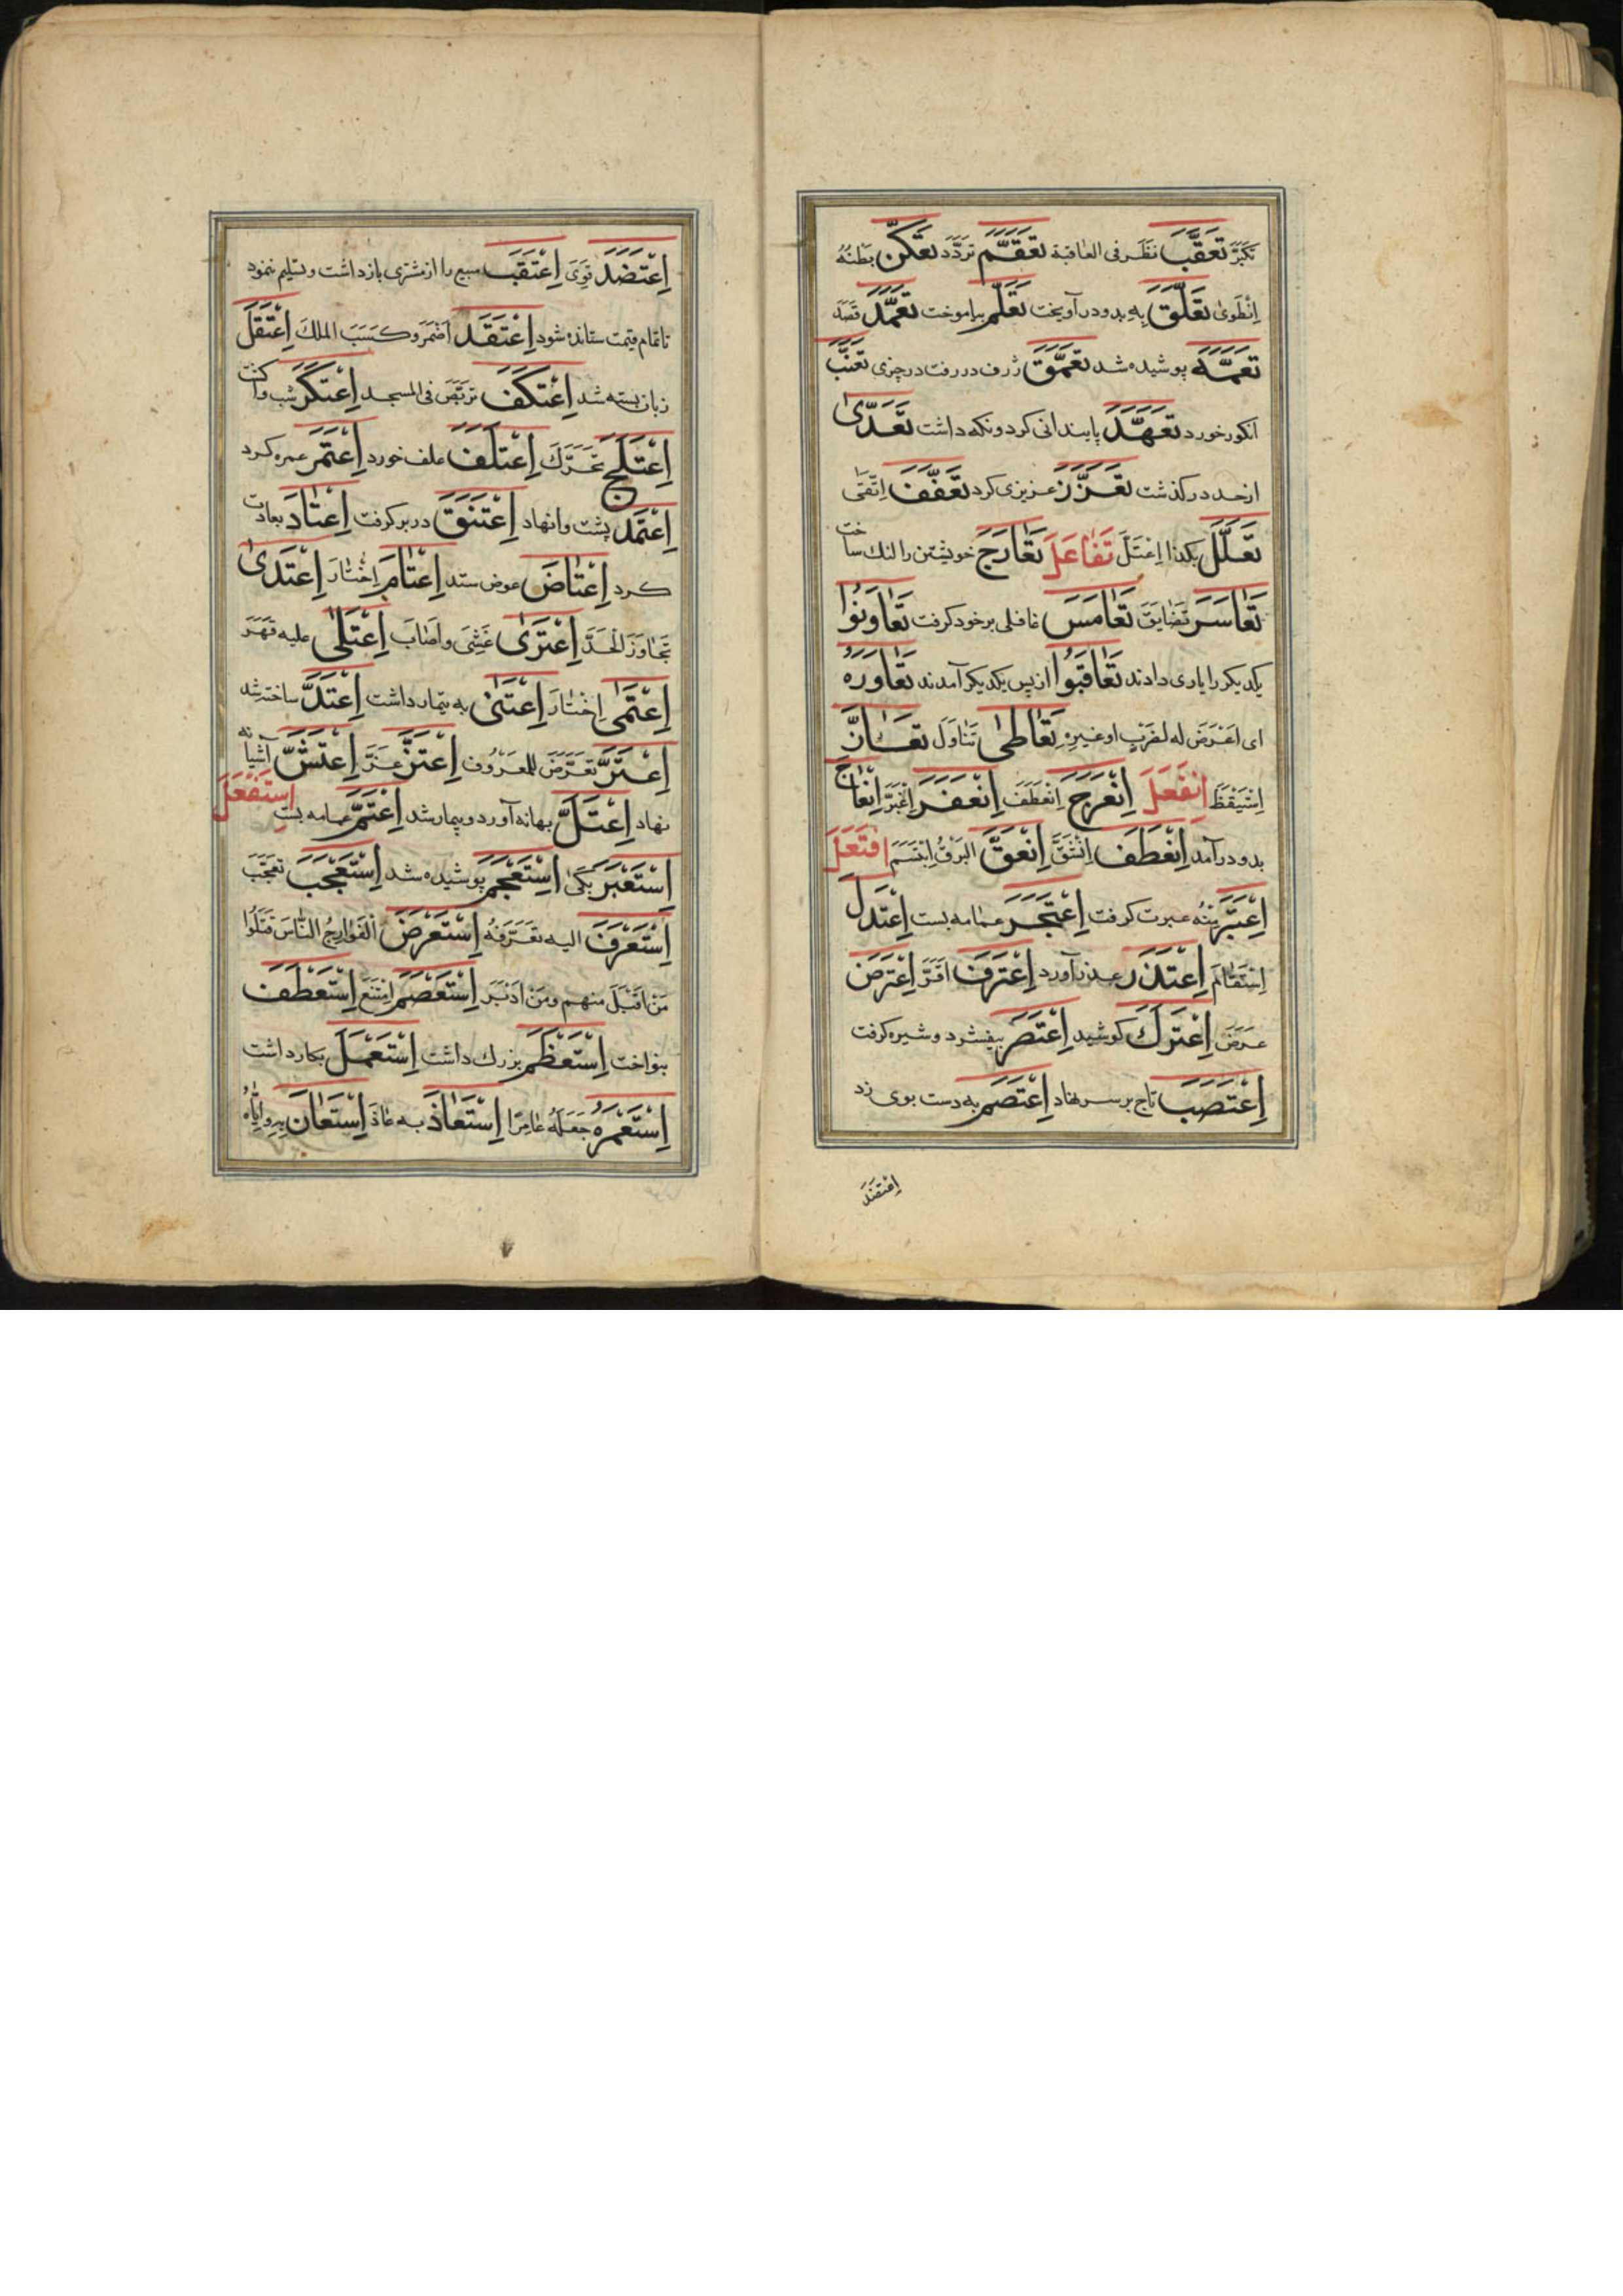 تَكَبَّرَ تَعَقَّبَ نَظَرَ فی العاقبة تَعَقَّمَ تردّد تَعَكَّنَ بَطْنُهُ
اِنْطَویٰ تَعَلَّقَ بِهِ بدو درآویخت تَعَلَّمَ بیاموخت تَعَمَّدَ قَصَدَ
تَعَمَّهَ پوشیده شد تَعَمَّقَ ژرف دررفت در چیزی تَعَنَّبَ
انكور خورد تَعَهَّدَ پایندانی كرد و نكه داشت تَعَدّیٰ
از حد در كذشت تَعَزَّزَ عزیزی كرد تَعَفَّفَ اِتَّقیٰ
تَعَلَّلَ بكذا اِعْتَلَّ تَفَاعَلَ تَعَارَجَ خویشتن را لنك ساخت
تَعَاسَرَ تَضَایَقَ تَعَامَسَ غافلی بر خود كرفت تَعَاوَنُوا
یكدیكر را یاری دادند تَعَاقَبُوا از پس یكدیكر آمدند تَعَاوَرَهُ
ای اعْتَرَضَ له لضَرْبٍ او غیرِهِ تَعَاطیٰ تَنَاوَلَ تَعَارَّ
اِسْتَیْقَظَ اِنْفَعَلَ اِنْعَرَجَ اِنْعَطَفَ اِنْعَفَرَ اِغْبَرَّ اِنْعَاجَ
بدو درآمد اِنْعَطَفَ اِنْشَقَّ اِنْعَقَّ البَرْقُ اِبْتَسَمَ اِفْتَعَلَ
اِعْتَبَرَ مِنْهُ عبرت كرفت اِعْتَجَرَ عمامه بست اِعْتَدَلَ
اِسْتَقَامَ اِعْتَذَرَ عذر آورد اِعْتَرَفَ اَقَرَّ اِعْتَرَضَ
عَرَضَ اِعْتَرَكَ كوشید اِعْتَصَرَ بیفشرد و شیره كرفت
اِعْتَصَبَ تاج بر سر نهاد اِعْتَصَمَ به دست بوی زد
اِعْتَضَدَ
اِعْتَضَدَ قَوِیَ اِعْتَقَبَ مبیع را از مشتری بازداشت و تسلیم ننمود
تا تمام قیمت ستانده شود اِعْتَقَدَ اَضْمَرَ و كَسَبَ الملكَ اِعْتَقَلَ
زبان بسته شد اِعْتَكَفَ تَرَبَّصَ فی المسجد اِعْتَكَرَ شب وا كشت
اِعْتَلَجَ تَحَرَّكَ اِعْتَلَفَ علف خورد اِعْتَمَرَ عمره كرد
اِعْتَمَدَ پشت وانهاد اِعْتَنَقَ در بر كرفت اِعْتَادَ بعادت
كرد اِعْتَاضَ عوض ستد اِعْتَامَ اِخْتَارَ اِعْتَدیٰ
تَجَاوَزَ الْحَدَّ اِعْتَریٰ غَشِیَ و اَصَابَ اِعْتَلیٰ علیه قَهَرَ
اِعْتَمیٰ اِخْتَارَ اِعْتَنیٰ به تیمار داشت اِعْتَدَّ ساخته شد
اِعْتَرَّ تَعَرَّضَ للمَعْرُوف اِعْتَزَّ عَزَّ اِعْتَشَّ آشیانه
نهاد اِعْتَلَّ بهانه آورد و بیمار شد اِعْتَمَّ عمامه بست اِسْتَفْعَلَ
اِسْتَعْبَرَ بَكیٰ اِسْتَعْجَمَ پوشیده شد اِسْتَعْجَبَ تَعَجَّبَ
اِسْتَعْرَفَ الیه تَعَرَّفَهُ اِسْتَعْرَضَ الْخَوَارِجُ النَّاسَ قَتَلُوا
مَنْ اَقْبَلَ منهم و مَنْ اَدْبَرَ اِسْتَعْصَمَ اِمْتَنَعَ اِسْتَعْطَفَ
بنواخت اِسْتَعْظَمَ بزرك داشت اِسْتَعْمَلَ بكار داشت
اِسْتَعْمَرَهُ جَعَلَهُ عَامِرًا اِسْتَعَاذَ به عَاذَ اِسْتَعَانَ بِهِ و اِیَّاهُ